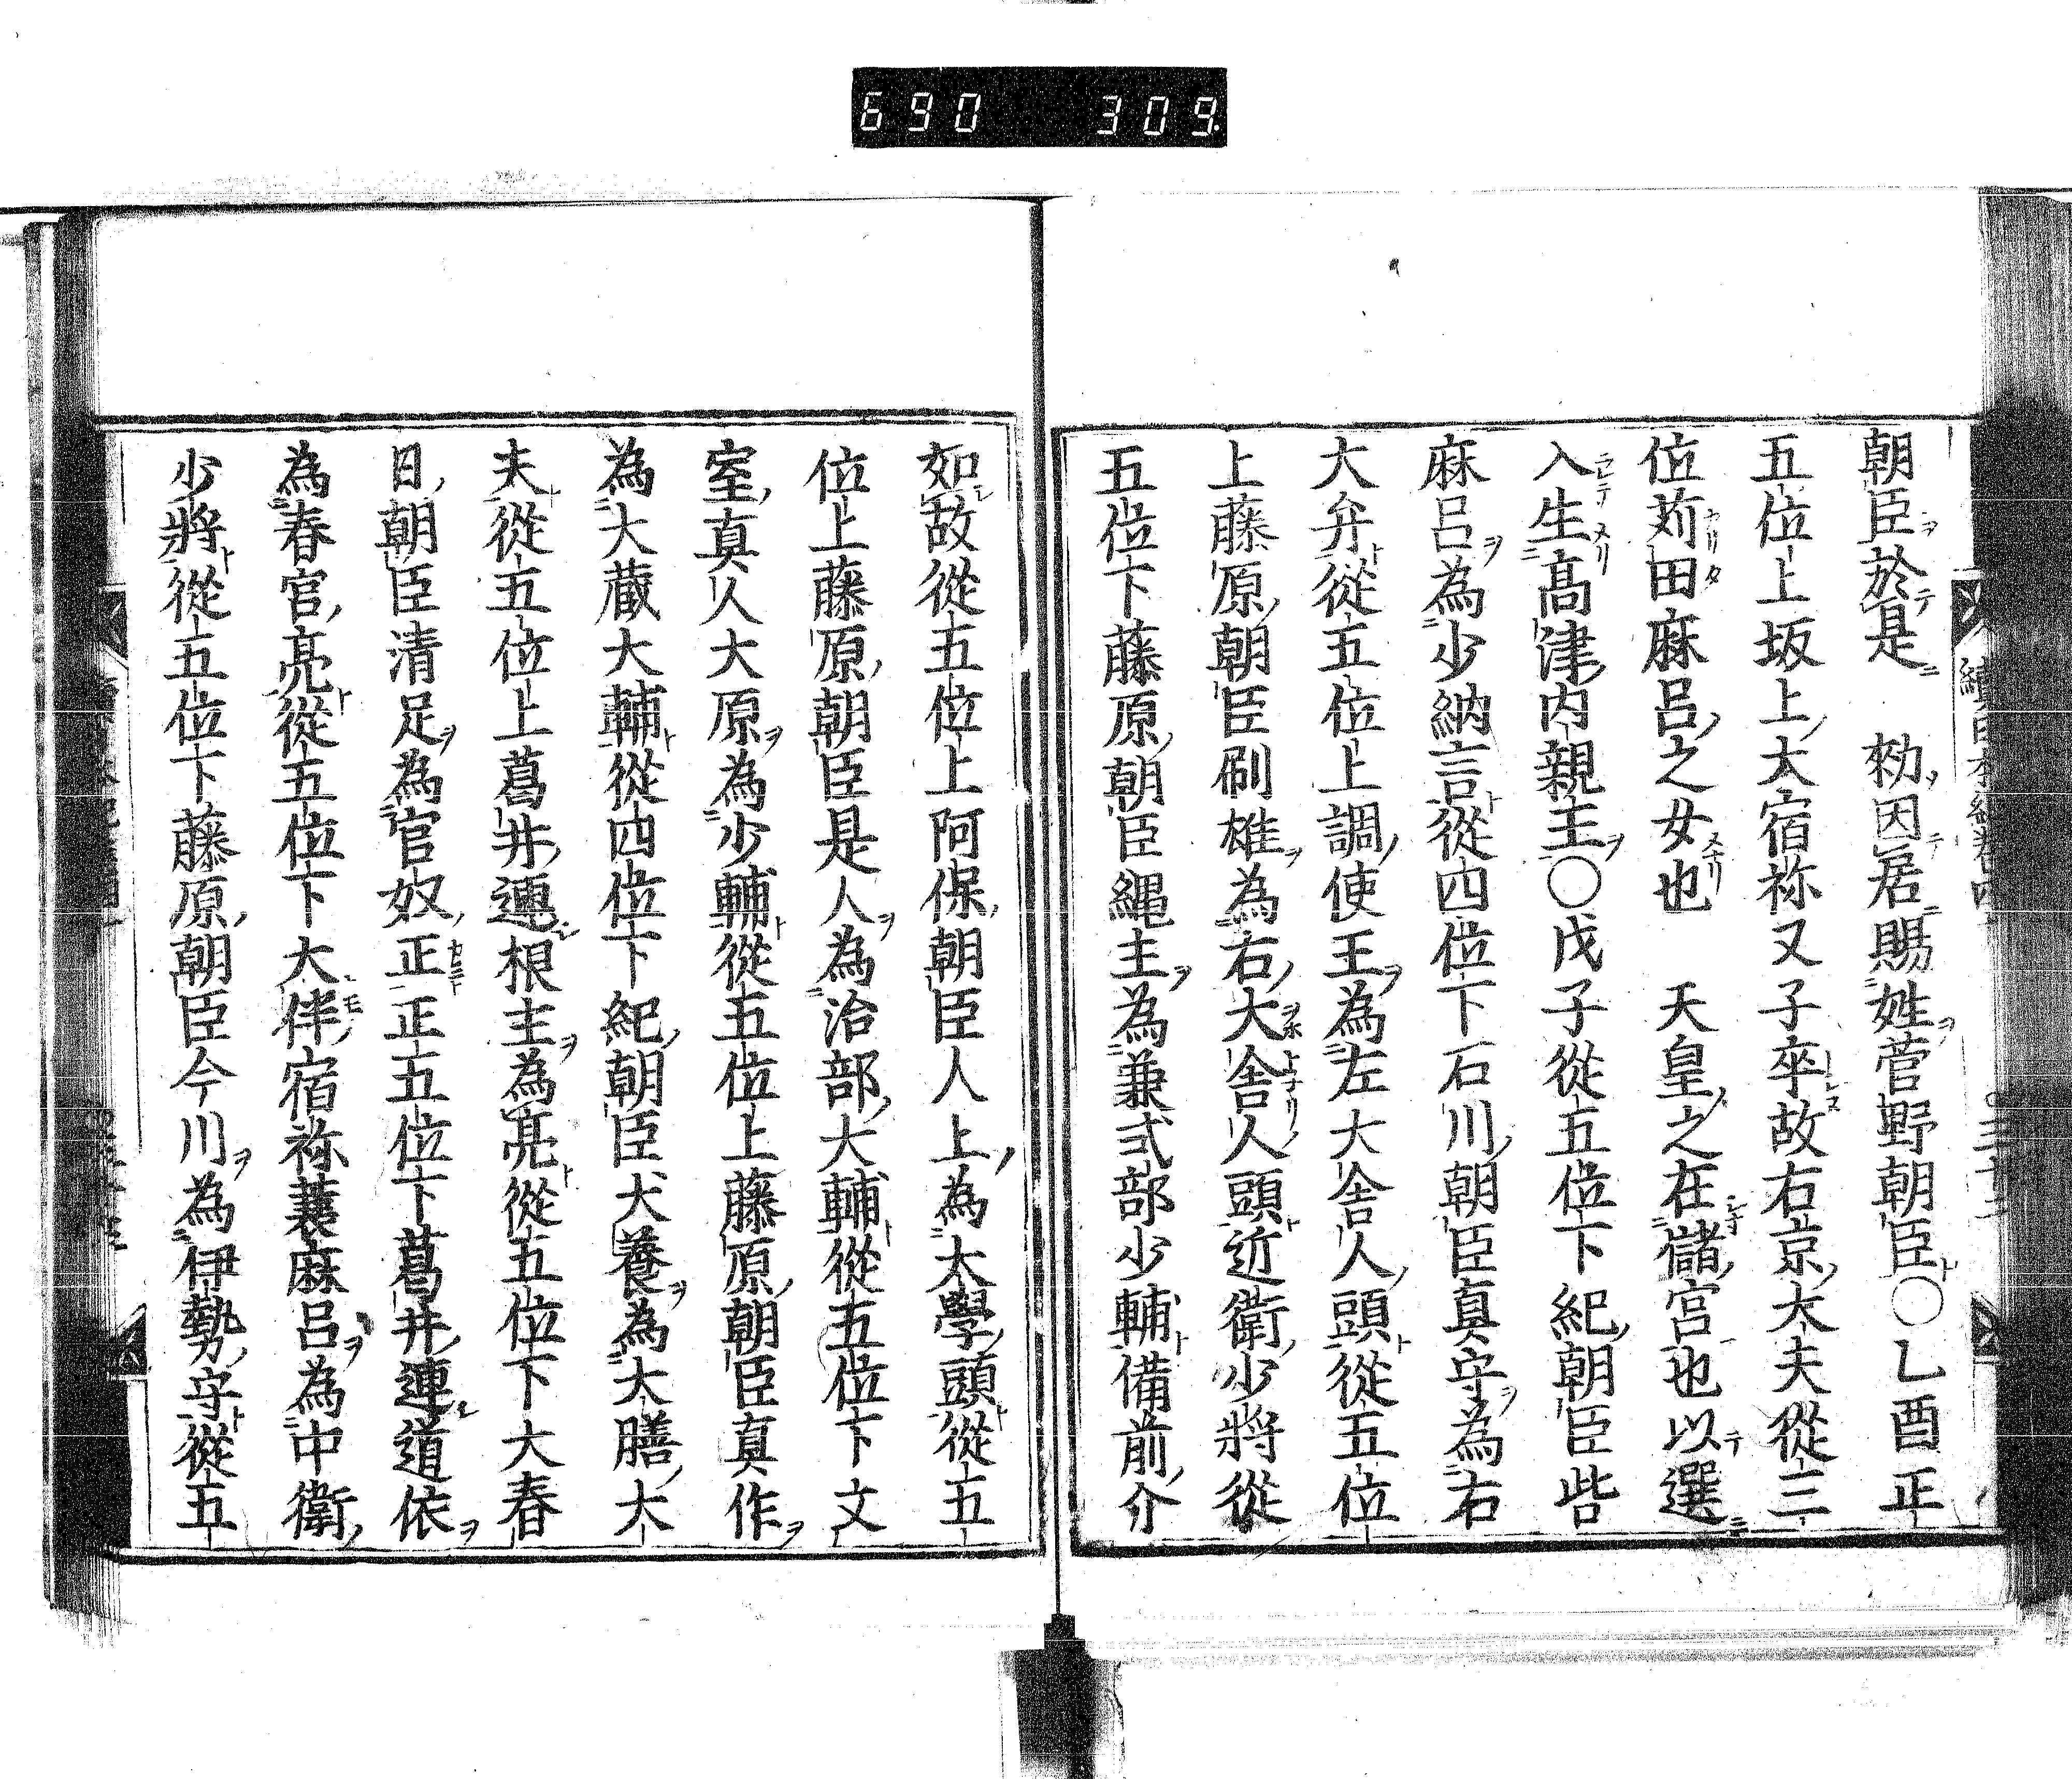 690 309
朝臣於是 勅因居賜姓菅野朝臣○乙酉正
五位上坂上大宿祢又子卒故右京大夫從三
位苅田麻呂之女也 天皇之在儲宮也以選
入生高津內親王○戊子從五位下紀朝臣呰
麻呂為少納言從四位下石川朝臣真守為右
大弁從五位上調使王為左大舍人頭從五位
上藤原朝臣刷雄為右大舍人頭近衛少將從
五位下藤原朝臣縄主為兼式部少輔備前介
如故從五位上阿保朝臣人上為大學頭從五
位上藤原朝臣是人為治部大輔從五位下文
室真人大原為少輔從五位上藤原朝臣真作
為大蔵大輔從四位下紀朝臣犬養為大膳大
夫從五位上葛井連根主為亮從五位下大春
日朝臣清足為官奴正正五位下葛井連道依
為春官亮從五位下大伴宿祢蓑麻呂為中衛
少將從五位下藤原朝臣今川為伊勢守從五